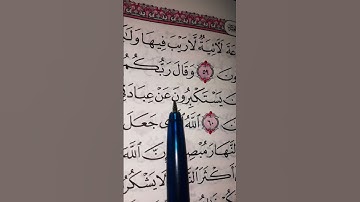 عَةَ لَآتِيَةٌ لَّا رَيْبَ فِيهَا وَلَٰكِ
ونَ ٥٩ وَقَالَ رَبُّكُمُ
نَ يَسْتَكْبِرُونَ عَنْ عِبَادَتِ
نَ ٦٠ اللَّهُ جَعَلَ
النَّهَارَ مُبْصِرًا إِنَّ اللَّهَ
أَكْثَرَ لَا يَشْكُرُ